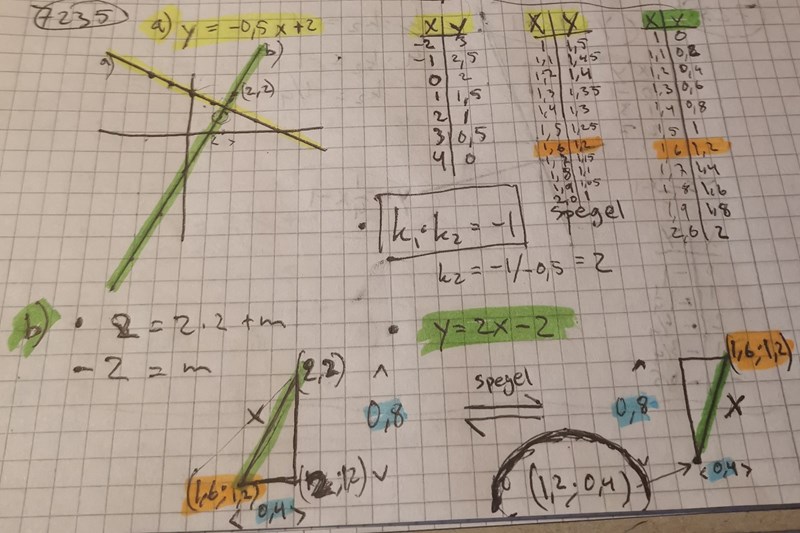 7235
a) y = -0,5x+2
a)
b)
(2,2)
X Y
-2 3
-1 2,5
0 2
1 1,5
2 1
3 0,5
4 0
X Y
1 1,5
1,1 1,45
1,2 1,4
1,3 1,35
1,4 1,3
1,5 1,25
1,6 1,2
1,15
1,1
1,9 1,05
2,0 1
spegel
X Y
1 0
1,1 0,2
1,2 0,4
1,3 0,6
1,4 0,8
1,5 1
1,6 1,2
1,7 1,4
1,8 1,6
1,9 1,8
2,0 2
k₁·k₂ = -1
k₂ = -1/-0,5 = 2
b) • 2 = 2·2+m
-2 = m
• y=2x-2
(2,2)
X
0,8
(1,6;1,2)
< 0,4 >
spegel
(1,2;0,4)
(1,6;1,2)
0,8
X
< 0,4 >